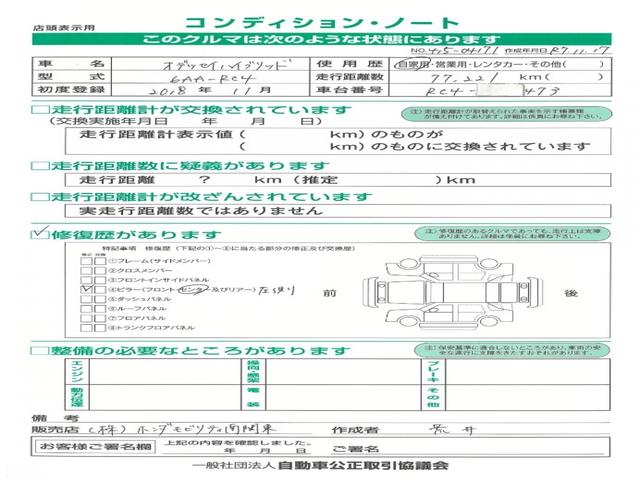 店頭表示用
コンディション・ノート
このクルマは次のような状態にあります
NO.415-04171 作成年月日 R7.11.17
車名 オデッセイハイブリッド 使用歴 自家用・営業用・レンタカー・その他( )
型式 6AA-RC4 走行距離数 77,221 km( )
初度登録 2018年 11月 車台番号 RC4- 473
□走行距離計が交換されています
(交換実施年月日 年 月 日)
注)走行距離計が取替えられた事実を示す備票類が備え付けてあります。詳細は係員にお尋ね下さい。
走行距離計表示値( km)のものが
( km)のものに交換されています
□走行距離数に疑義があります
走行距離 ? km(推定 )km
□走行距離計が改ざんされています
実走行距離数ではありません
□修復歴があります
注)修復歴のあるクルマであっても、走行上は支障ありません。詳細は係員にお尋ね下さい。
特記事項 修復歴(下記の①~⑧に当たる部分の修正及び交換歴)
修正 交換
①フレーム(サイドメンバー)
②クロスメンバー
③フロントインサイドパネル
④ピラー(フロント・センター及びリアー)
⑤ダッシュパネル
⑥ルーフパネル
⑦フロアパネル
⑧トランクフロアパネル
前
後
□整備の必要なところがあります
注)保安基準に適合しないところがあり、車両の安全な運行に支障をきたすおそれがあります。
エンジン
操向装架
ブレーキ
動力伝達
電装
その他
備考
販売店 (株)ホンダモビリティ南関東 作成者 荒井
お客様ご署名欄 上記の内容を確認しました。
年 月 日
一般社団法人 自動車公正取引協議会